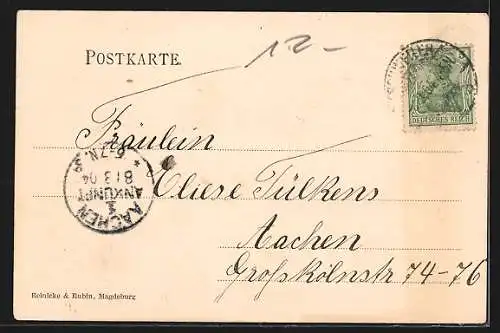 12-
POSTKARTE.
DEUTSCHES REICH
Fräulein
Eliese Tülkens
Aachen
Großkölnstr 74-76
AACHEN
1
ANKUNFT
8/3 04
6-7N.
Reinicke & Rubin, Magdeburg